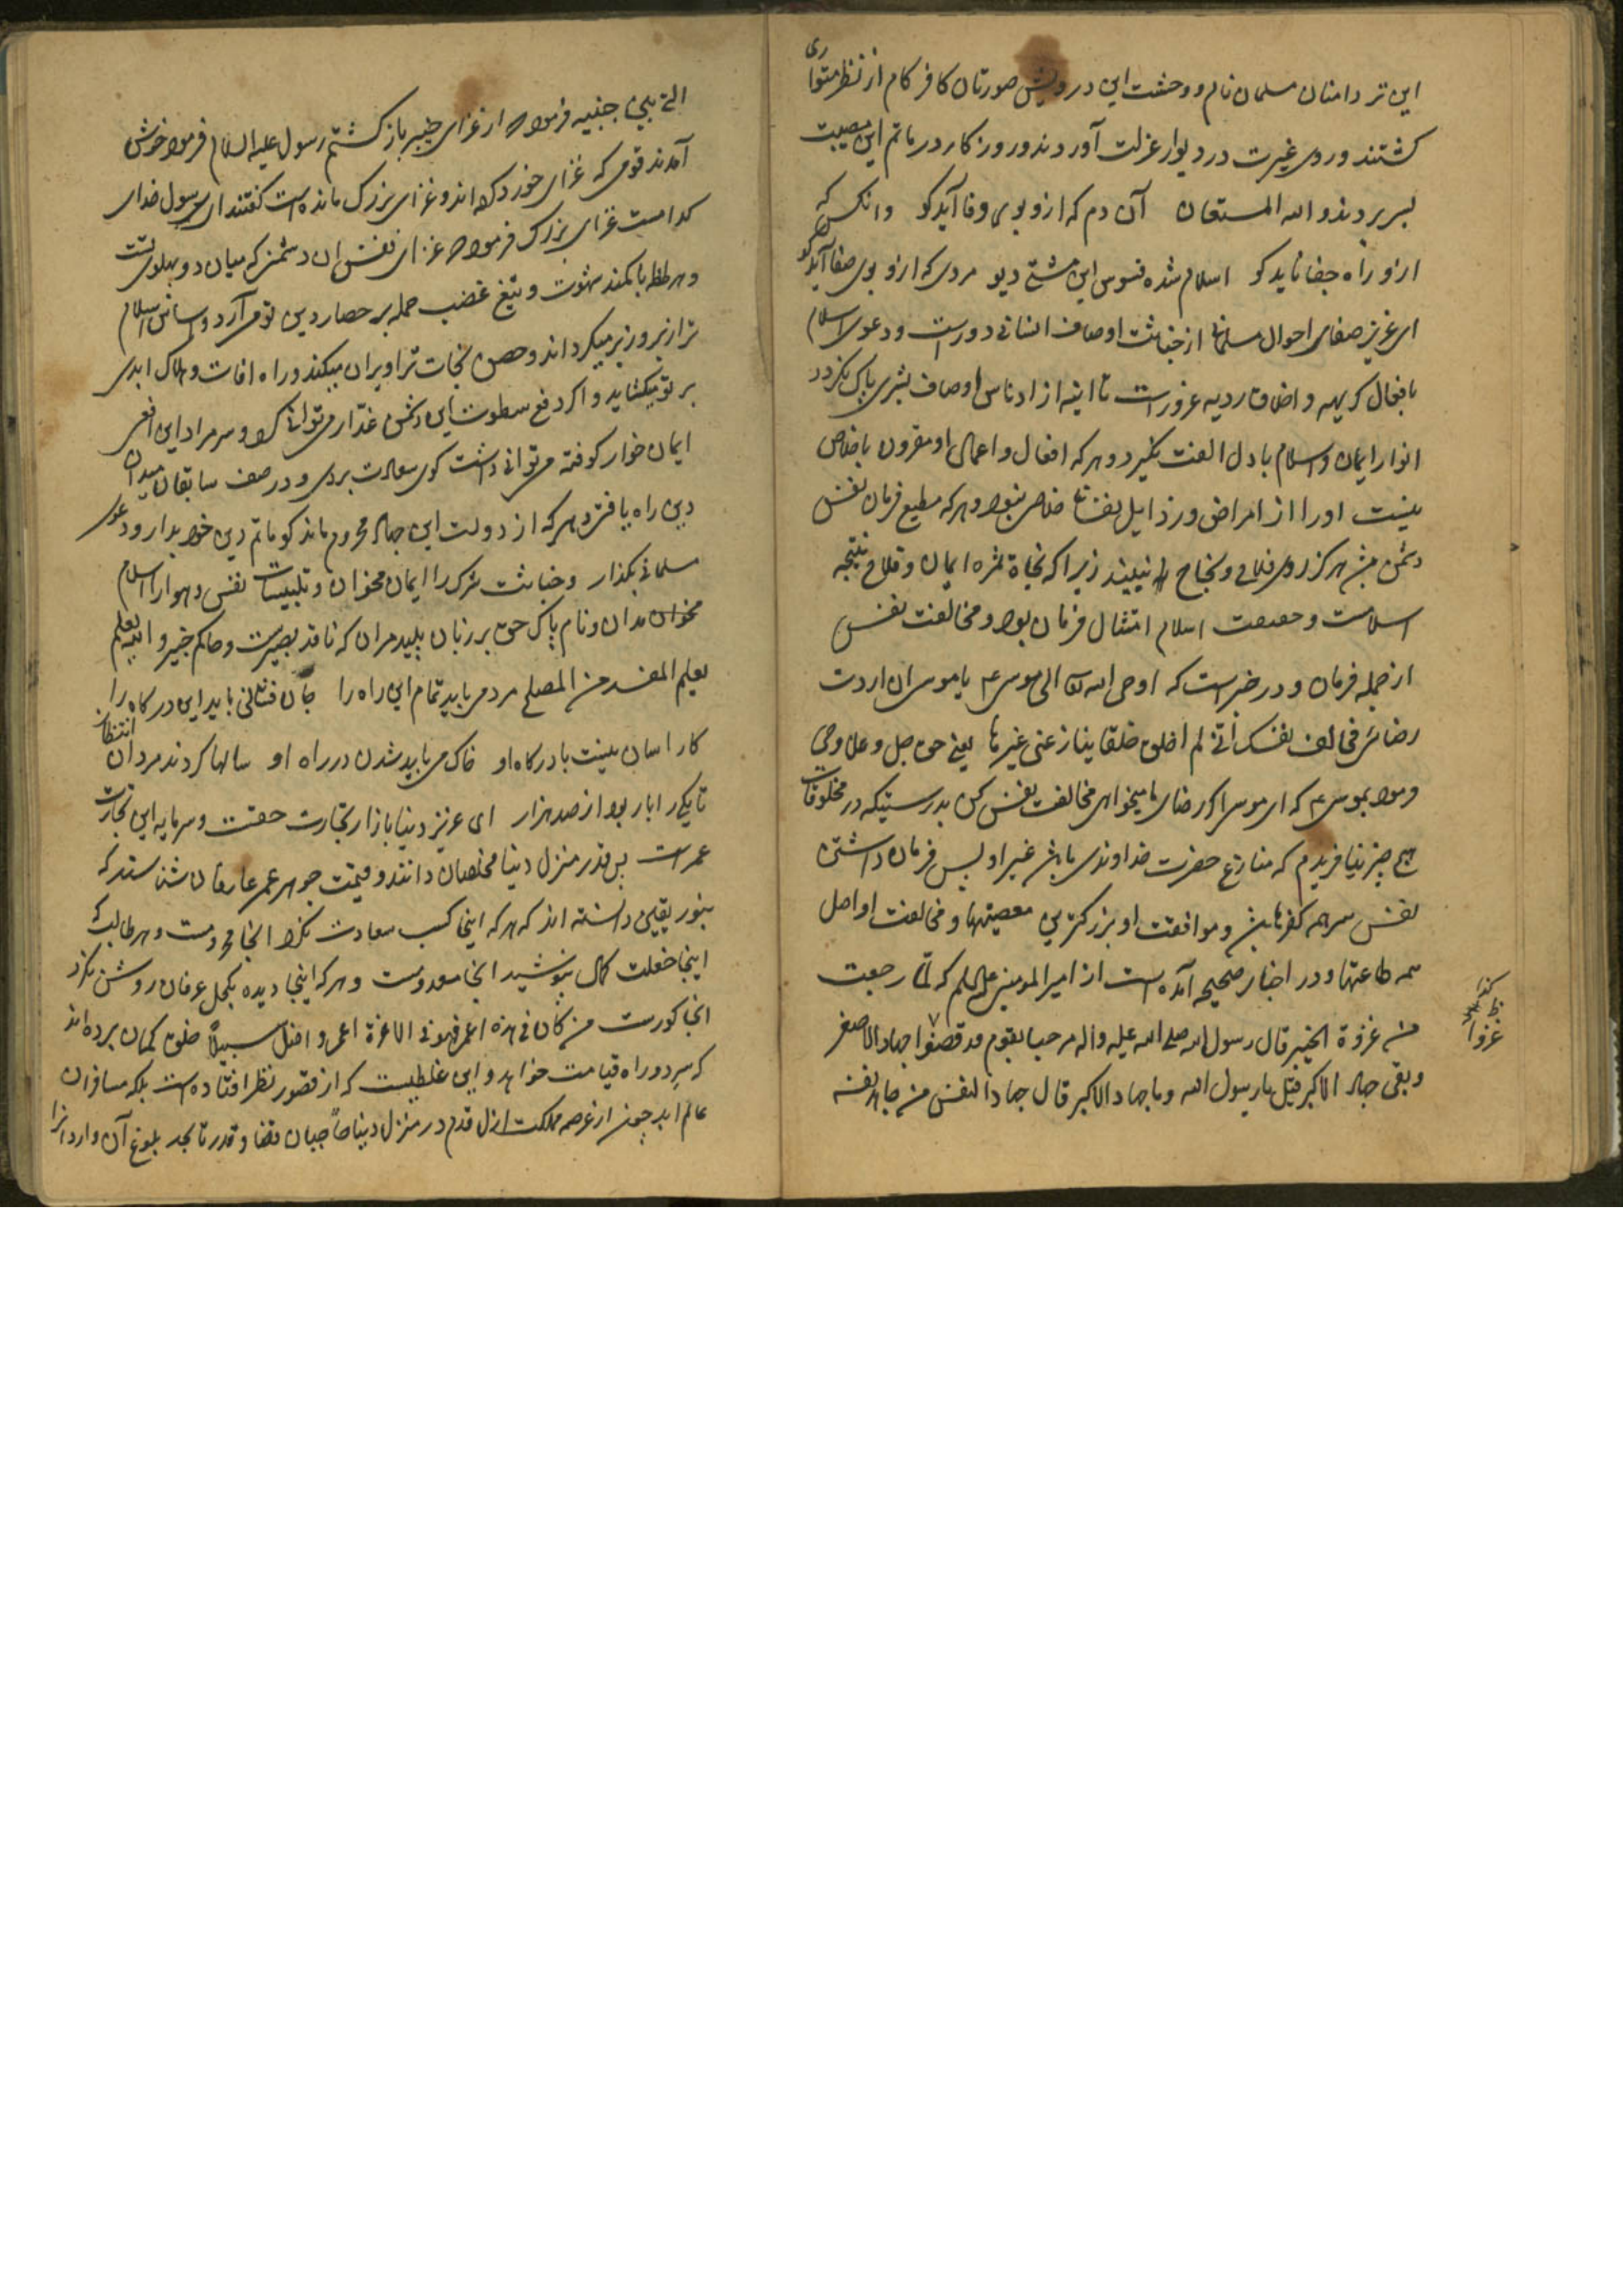 این تر دامنان مسلمان نام و وحشت این درویش صورتان کافر کام از نظر متواری
کشتند و روی غیرت در دیوار عزلت آوردند و روزکار در ماتم این مصیبت
بسر بردند و الله المستعان آن دم که ازو بوی وفا آید کو وانکس که
ازو راه جفا ناید کو اسلام شده فسوس این مشتی دیو مردی که ازو بوی صفا آید کو
ای عزیز صفای احوال مسلمانی از خباثت اوصاف انسانی دورست و دعوی اسلام
با افعال کریهه و اخلاق ردیه غرورست تا اینه از ادناس اوصاف بشری پاک نکردد
انوار ایمان و اسلام با دل الفت نکیرد و هر که افعال و اعمال او مقرون باخلاص
نیست او را از امراض و رذایل نفسانی خلاص نبود و هر که مطیع فرمان نفس
دشمن هرکز روی فلاح و نجاح نبیند زیرا که نجاة ثمره ایمان و فلاح نتیجه
اسلامست و حقیقت اسلام امتثال فرمان بود و مخالفت نفس
از جمله فرمان و در خبرست که اوحی الله الی موسی ع یا موسی ان اردت
رضائی فخالف نفسک انی لم اخلق خلقا ینازعنی غیرها یعنی حق جل و علا وحی
فرمود بموسی ع که ای موسی اکر رضای ما میخواهی مخالفت نفس کن بدرستیکه در مخلوقات
هیچ چیز نیافریدم که منازع حضرت خداوندی باشد غیر او پس فرمان داشتن
نفس سر همه کفرها و موافقت او بزرکترین معصیتها و مخالفت او اصل
همه طاعتها و در اخبار صحیحه آمده است از امیرالمؤمنین علیه السلم که لما رجعت
من غزوة الخیبر قال رسول الله صلی الله علیه و اله مرحبا بقوم قد قضوا جهاد الاصغر
و بقی جهاد الاکبر قیل یا رسول الله و ما جهاد الاکبر قال جهاد النفس من جاهد نفسه
کذا
ظ
غزوا
التی بین جنبیه فرمود از غزای خیبر باز کشتم رسول علیه السلام فرمود خوش
آمدند قومی که غزای خورد کرده اند و غزای بزرک مانده است کفتند ای رسول خدای
کدامست غزای بزرک فرمود غزای نفس ان دشمنی که میان دو پهلوی تست
و هر لحظه با کمند شهوت و تیغ غضب حمله بر حصار دین تو می آرد و اساس اسلام
ترا زیر و زبر میکرداند و حصن نجات ترا ویران میکند و راه افات و هلاک ابدی
بر تو میکشاید و اکر دفع سطوت این دشمن غدار می توانی کرد و سر مراد این افعی
ایمان خوار کوفته می توانی داشت کوی سعادت بردی و در صف سابقان میدان
دین راه یافتی و هر که از دولت این جهاد محروم ماند کو ماتم دین خود بدار و دعوی
مسلمانی بکذار و خباثت شرک را ایمان مخوان و تلبیسات نفس و هوا را اسلام
مخوان مدان و نام پاک حق بر زبان پلید مران که ناقد بصیرست و حاکم خبیر و الله یعلم
یعلم المفسد من المصلح مردمی باید تمام این راه را جان فشانی باید این درکاه را
کار اسان نیست با درکاه او خاک می باید شدن در راه او سالها کردند مردان انتظار
تا یکی را بار بود از صد هزار ای عزیز دنیا بازار تجارت حقست و سرمایه این تجارت
عمرست پس قدر منزل دنیا مخلصان دانند و قیمت جوهر عمر عارفان شناسند که
بنور یقین دانسته اند که هر که اینجا کسب سعادت نکرد انجا محرومست و هر طالب که
اینجا خلعت کمال نپوشید انجا معدومست و هر که اینجا دیده بکحل عرفان روشن نکرد
انجا کورست من کان فی هذه اعمی فهو فی الاخرة اعمی و اضل سبیلا خلق کمان برده اند
که سر دو راه قیامت خواهد و این غلطیست که از قصور نظر افتاده است بلکه مسافران
عالم ابد چون از عرصه مملکت ازل قدم در منزل دنیا حاجبان قضا و قدر تا بحد بلوغ آن واردانرا